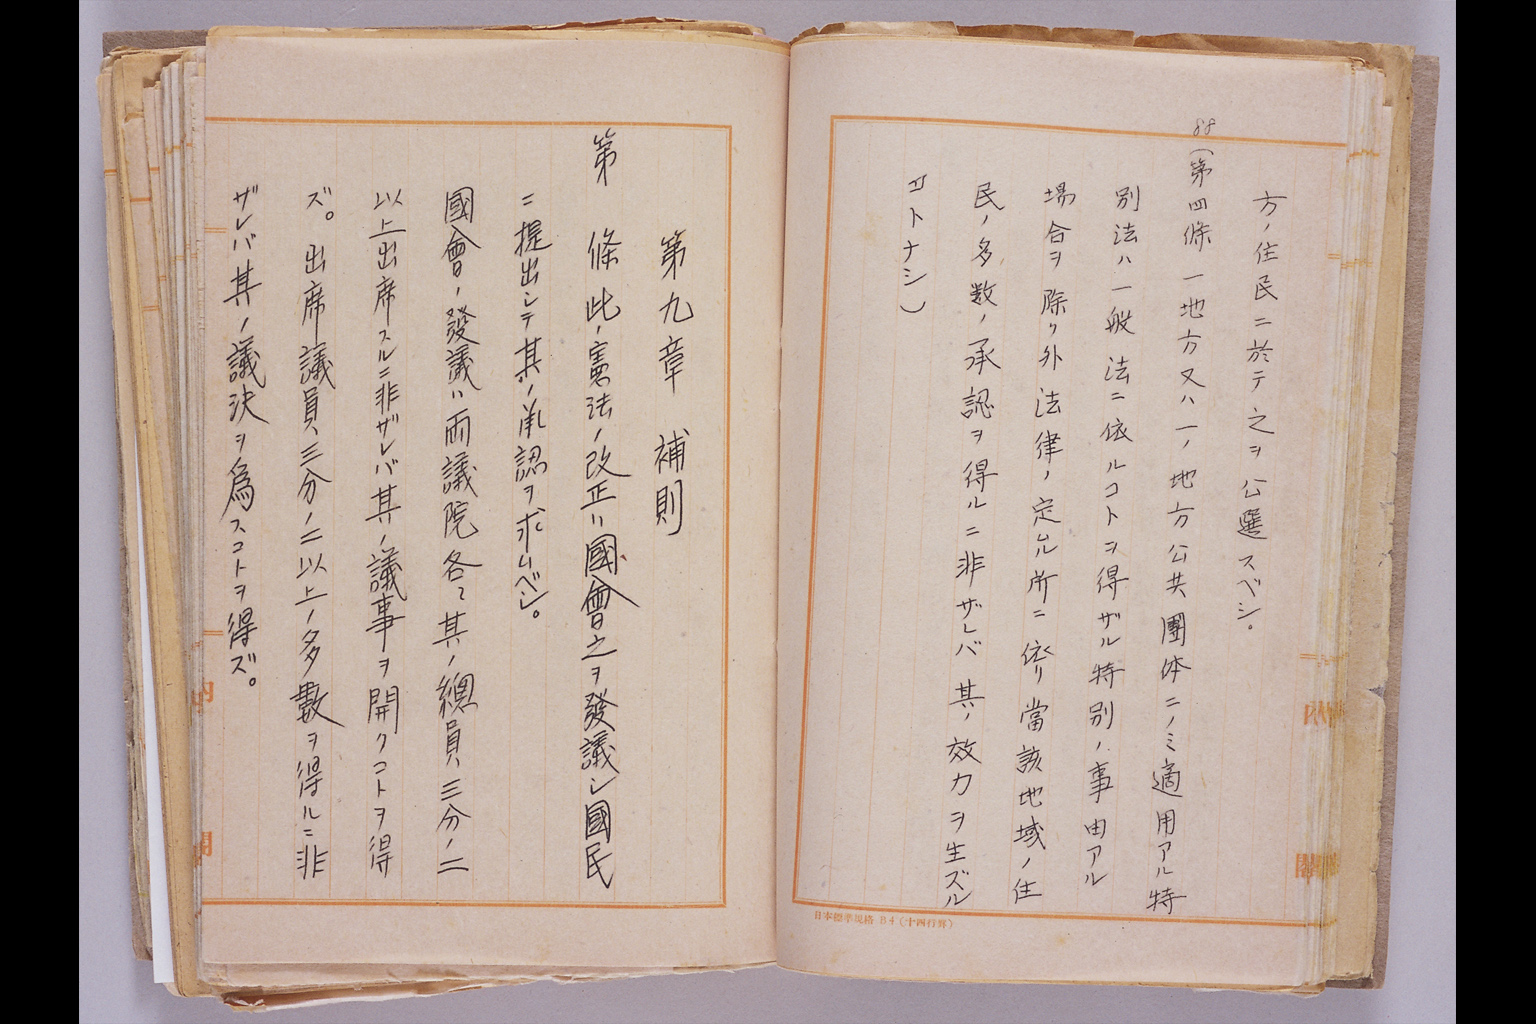 方ノ住民ニ於テ之ヲ公選スベシ。
88
(第四條 一地方又ハ一ノ地方公共團体ニノミ適用アル特
別法ハ一般法ニ依ルコトヲ得ザル特別ノ事由アル
場合ヲ除ク外法律ノ定ムル所ニ依リ當該地域ノ住
民ノ多数ノ承認ヲ得ルニ非ザレバ其ノ效力ヲ生ズル
コトナシ)
日本標準規格B4(十四行罫)
第九章 補則
第 條 此ノ憲法ノ改正ハ國會之ヲ發議シ國民
ニ提出シテ其ノ承認ヲ求ムベシ。
國會ノ發議ハ両議院各〻其ノ總員三分ノ二
以上出席スルニ非ザレバ其ノ議事ヲ開クコトヲ得
ズ。出席議員三分ノ二以上ノ多數ヲ得ルニ非
ザレバ其ノ議決ヲ爲スコトヲ得ズ。
内
閣